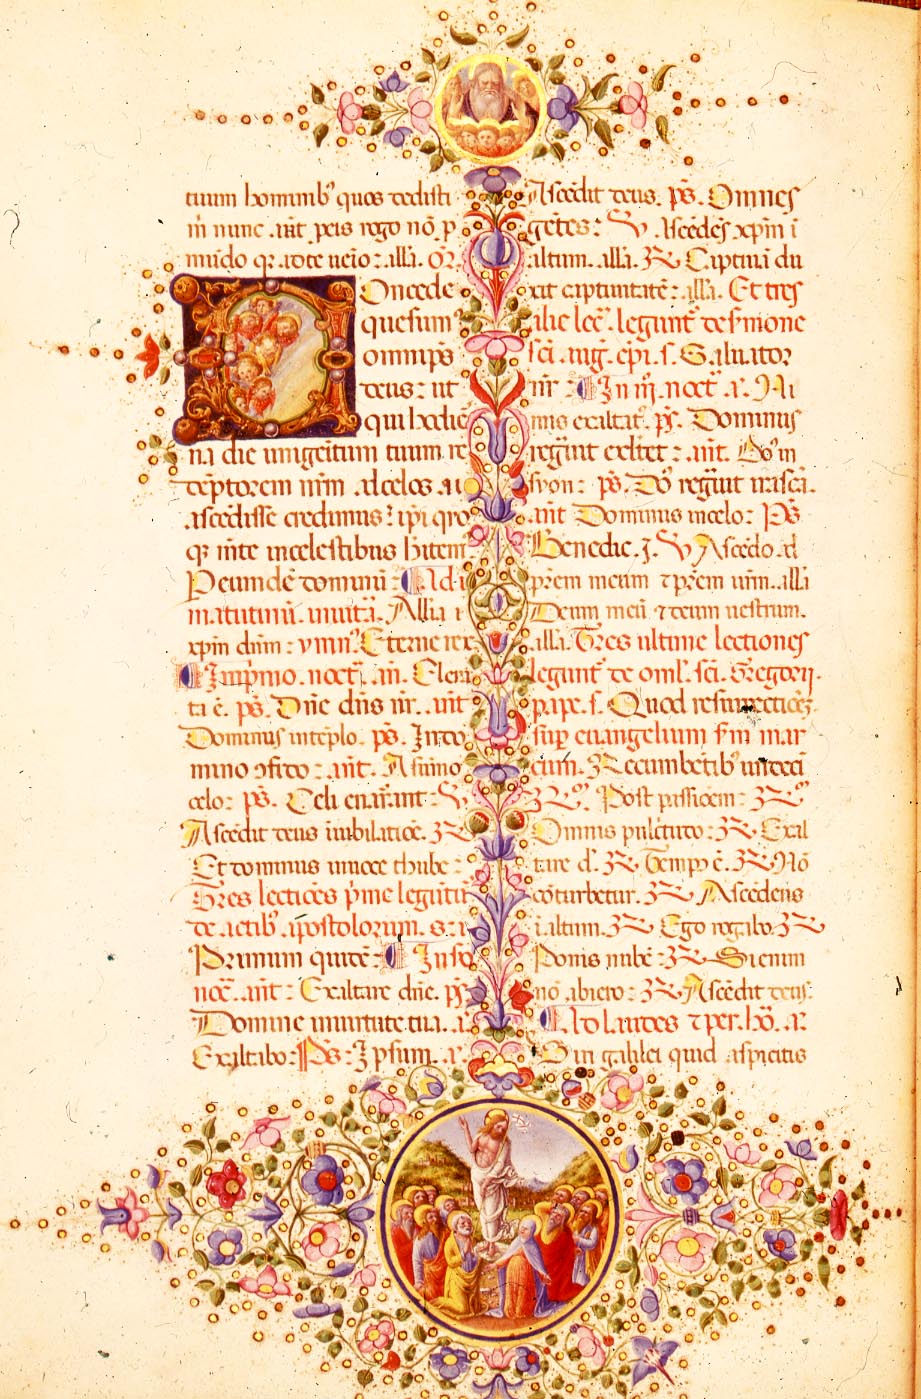 tuum hominibꝰ quos dedisti
m̄ nunc. añt. p̱ eis rogo nō. p̱
mūdo qr. tote ueīo: .alla. Or̄.
Concede
quesum̄ꝰ
omnip̄s
deus: ut
qui hodie
na die unigeītum tuum re
dēptorem nr̄m .ad celos. a
ascēdisse credimus: ip̄i quo
q̨ mēte in celestibus hītem̄
Peumdē domum: Ad.
matutinū. inuitā. Allia
xp̄m dn̄m: vmn̄ꝰ. Eterne rex
In p̄mo. noct̄. an̄. Eleua
ta ē. p̄s. Dn̄e dn̄s nr̄. añt
Dominus in tēplo. p̄s. In do
mino ɔfido: añt. A sūmo
celo: p̄s. Celi enarāt: ℣.
Ascēdit deus in iubilatiōe. ℟
Et dominus in uoce thube:
Tres lectiōes p̄me legūtᷣ
de actibꝰ. apostolorum. s.
Primum quidē: In scḋo
noct̄. añt: Exaltare dn̄e. p̄s
Domine in uirtute tua. a.
Exaltabo: P̄s: Ip̄sum. a.
Ascēdit deus. p̄s. Omnes
gētes: ℣. Ascēdēs xp̄m ī
altum. alla. ℟. Captiuā du
xit captiuitatē: alla. Et tres
alie lec̄. legunt̄ de s̄mone
sc̄i. aug. ep̄i. s. Saluator
nr̄: In iij. noct̄. a. Ni
mis exaltatꝰ. p̄s. Dominus
regn̄it exl̄tet: añt. Dn̄s in
syon: p̄s. Dn̄s regn̄it irascā.
añt Dominus in celo: Ps̄
Benedic. j. ℣ Ascēdo ad
prēm meum ⁊ prēm ur̄m. alla
Deum meū ⁊ deum uestrum.
alla. Tres ultime lectiones
legunt̄ de oml̄. sc̄i. Gregorij.
pape. s. Quod resurrectiōēȝ
suꝑ euangelium s̄m mar
cum. Recumbētibꝰ undeci
℟. Post passiōem: ℟
Omnis pulcritudo: ℟. Exal
tare d̄. ℟ Tempꝰ ē. ℟ Nō
cōturbetur. ℟ Ascēdens
ī altum. ℟. Ego rogabo. ℟
Ponis nubē: ℟. Si enim
nō abiero: ℟ Ascēdit deus:
Ad Laudes ⁊ per. hō. a.
Viri galilei quid aspicitis